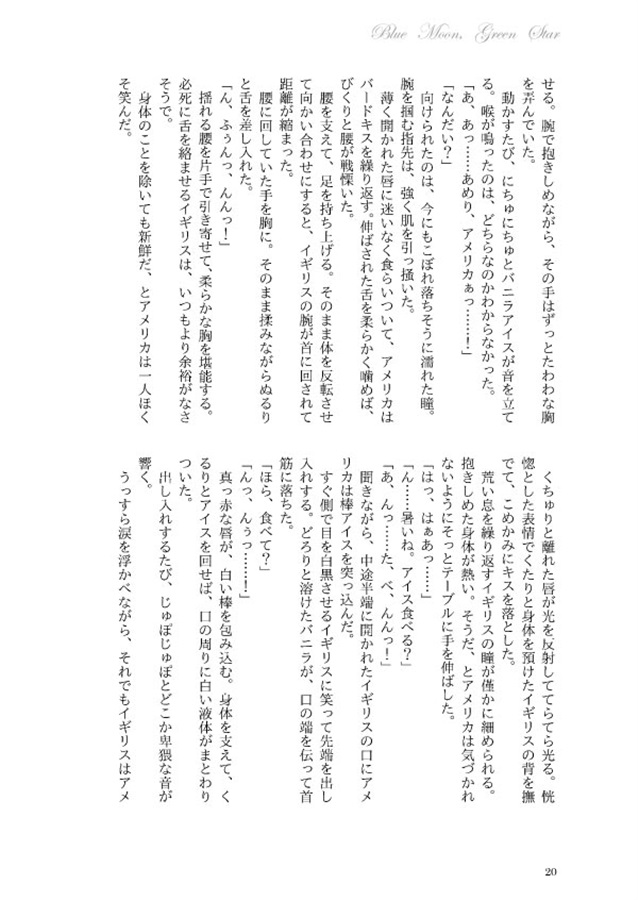 Blue Moon, Green Star
せる。腕で抱きしめながら、その手はずっとたわわな胸
を弄んでいた。
　動かすたび、にちゅにちゅとバニラアイスが音を立て
る。喉が鳴ったのは、どちらなのかわからなかった。
「あ、あっ……あめり、アメリカぁっ……！」
「なんだい？」
　向けられたのは、今にもこぼれ落ちそうに濡れた瞳。
腕を掴む指先は、強く肌を引っ掻いた。
　薄く開かれた唇に迷いなく食らいついて、アメリカは
バードキスを繰り返す。伸ばされた舌を柔らかく噛めば、
びくりと腰が戦慄いた。
　腰を支えて、足を持ち上げる。そのまま体を反転させ
て向かい合わせにすると、イギリスの腕が首に回されて
距離が縮まった。
　腰に回していた手を胸に。そのまま揉みながらぬるり
と舌を差し入れた。
「ん、ふぅんっ、んんっ！」
　揺れる腰を片手で引き寄せて、柔らかな胸を堪能する。
必死に舌を絡ませるイギリスは、いつもより余裕がなさ
そうで。
　身体のことを除いても新鮮だ、とアメリカは一人ほく
そ笑んだ。
　くちゅりと離れた唇が光を反射しててらてら光る。恍
惚とした表情でくたりと身体を預けたイギリスの背を撫
でて、こめかみにキスを落とした。
　荒い息を繰り返すイギリスの瞳が僅かに細められる。
抱きしめた身体が熱い。そうだ、とアメリカは気づかれ
ないようにそっとテーブルに手を伸ばした。
「はっ、はぁあっ……」
「ん……暑いね。アイス食べる？」
「あ、んっ……た、べ、んんっ！」
　聞きながら、中途半端に開かれたイギリスの口にアメ
リカは棒アイスを突っ込んだ。
　すぐ側で目を白黒させるイギリスに笑って先端を出し
入れする。どろりと溶けたバニラが、口の端を伝って首
筋に落ちた。
「ほら、食べて？」
「んっ、んぅっ……！」
　真っ赤な唇が、白い棒を包み込む。身体を支えて、く
るりとアイスを回せば、口の周りに白い液体がまとわり
ついた。
　出し入れするたび、じゅぽじゅぽとどこか卑猥な音が
響く。
　うっすら涙を浮かべながら、それでもイギリスはアメ
20